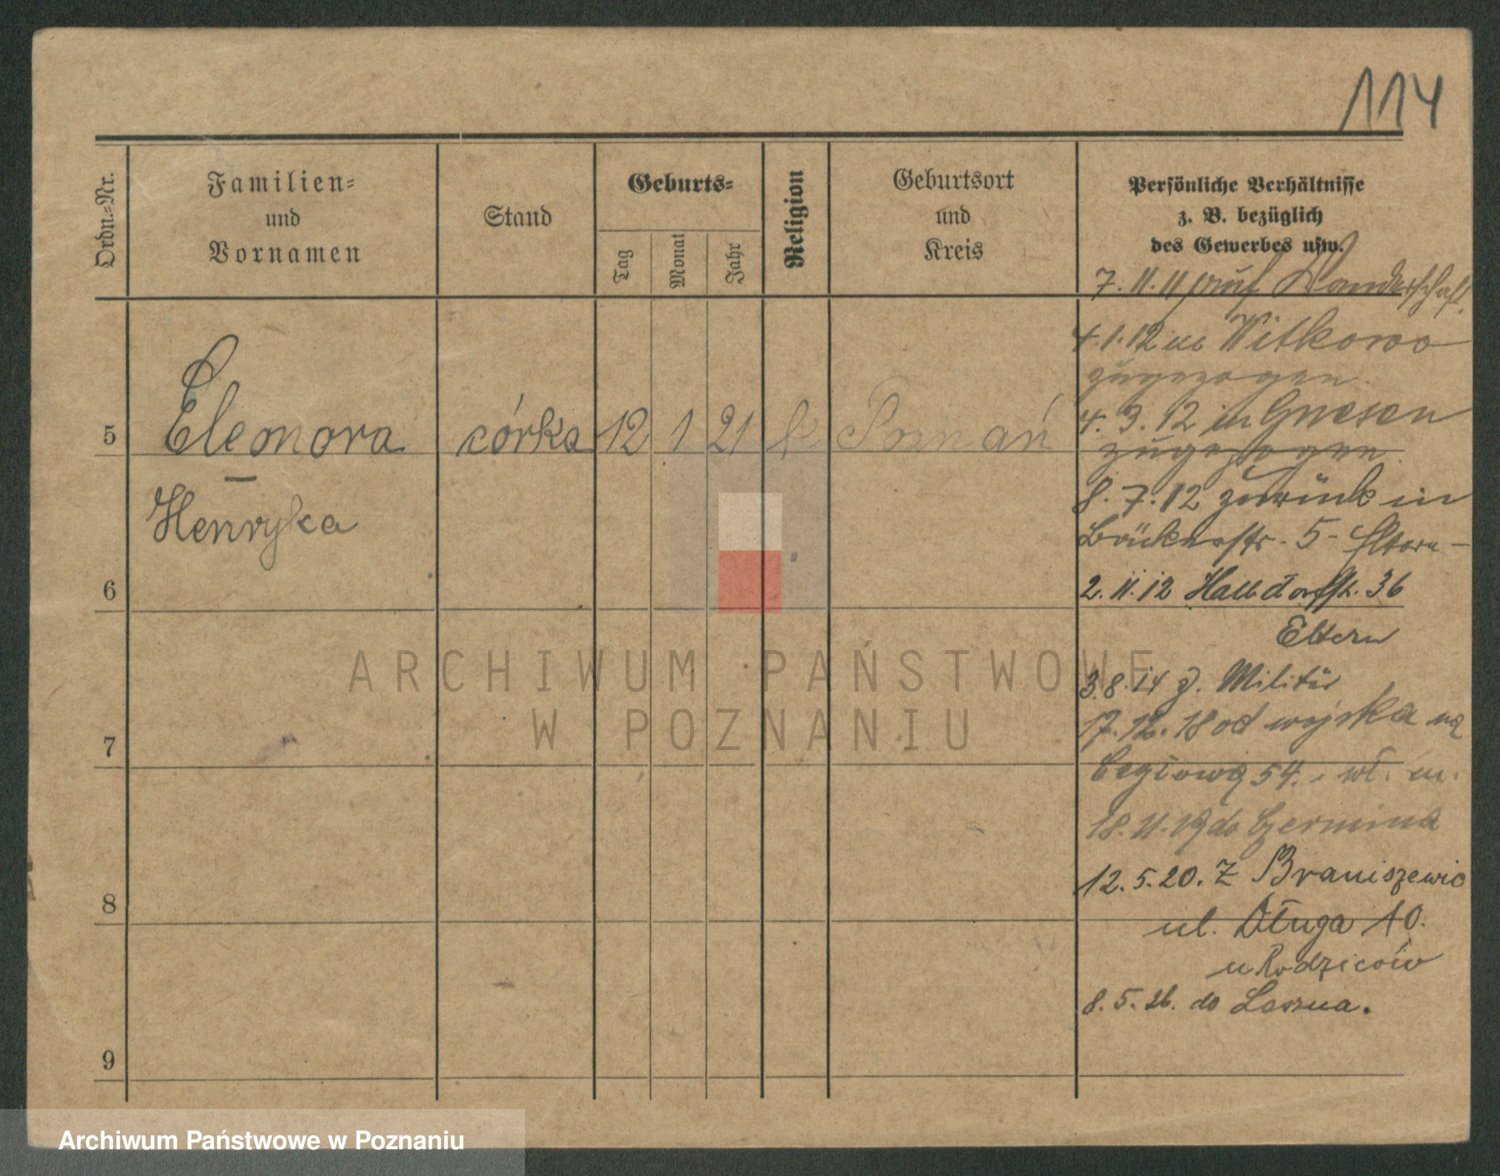 114
Ordn.-Nr.
Familien-
und
Vornamen
Stand
Geburts-
Tag
Monat
Jahr
Religion
Geburtsort
und
Kreis
Persönliche Verhältnisse
z. B. bezüglich
des Gewerbes usw.
7. 11. 11 auf Wanderschaft.
4. 1. 12 in Witkowo
zugezogen.
5 Eleonora córka 12 1 21 k Poznań
4. 3. 12 in Gnesen
zugezogen
Henryka
8. 7. 12 zurück in
Bäckerstr. 5 - Eltern -
6
2. 11. 12 Halbdorfstr. 36
Eltern
3.8.14 z. Militär
17. 12. 18 od wojska na
7
54. wł. m.
18. 11. 19 do Czermina
12. 5. 20. z Braniszewic
8
ul. Długa 10.
u Rodziców
8. 5. 26. do Leszna.
9
ARCHIWUM PAŃSTWOWE
W POZNANIU
Archiwum Państwowe w Poznaniu